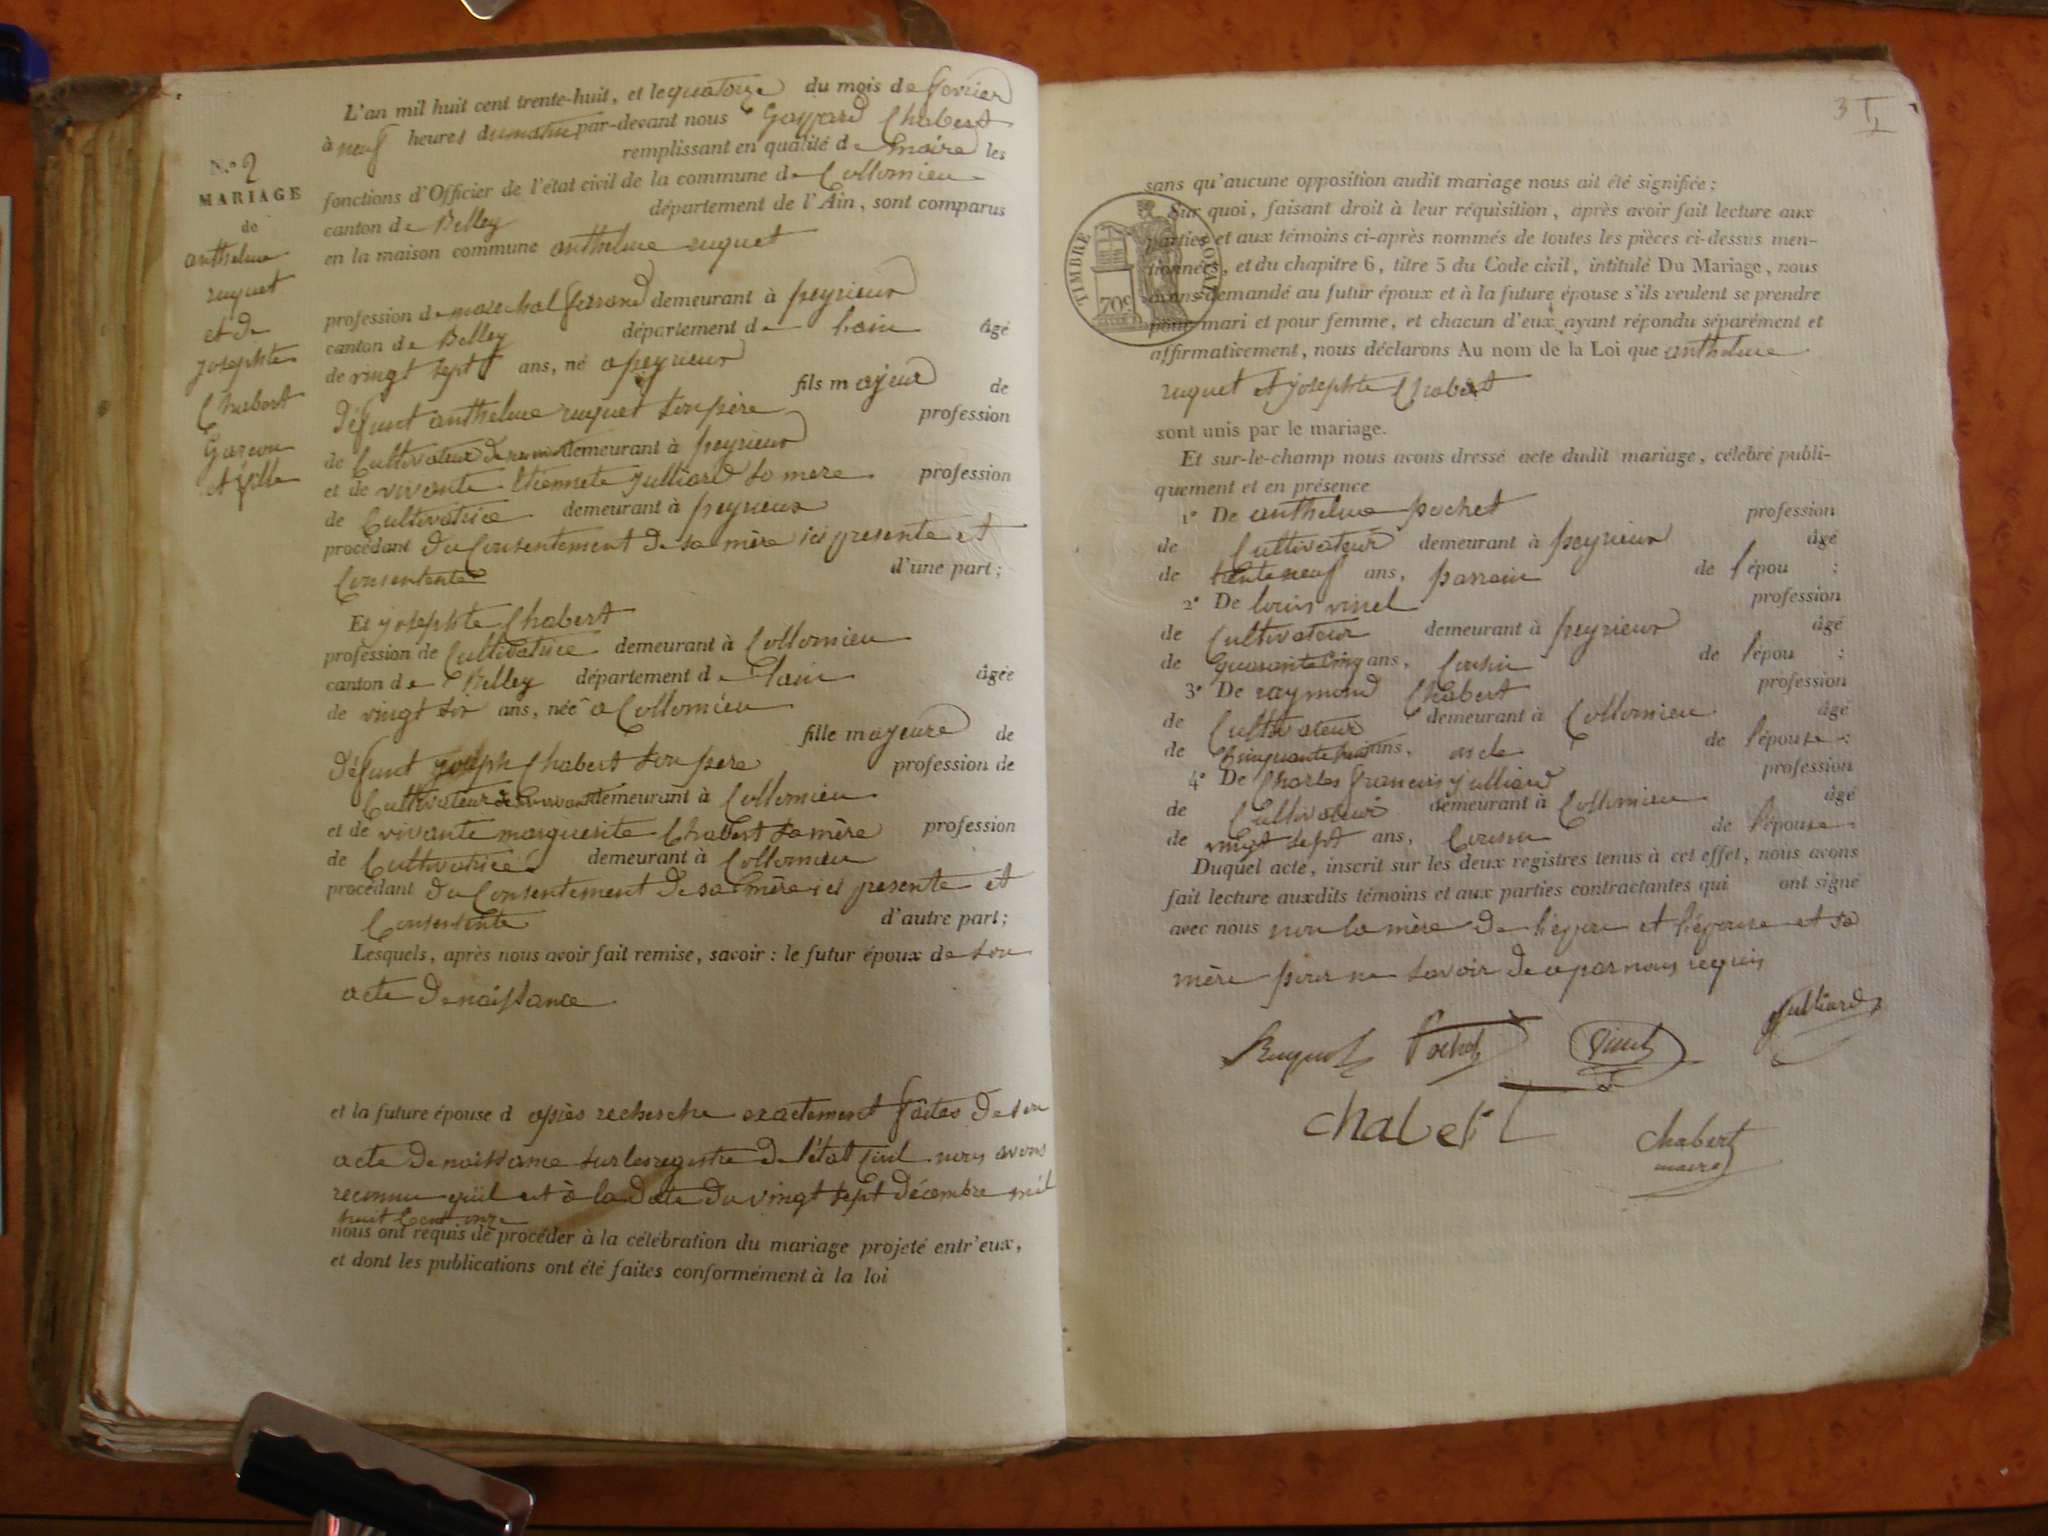 N.º 2
MARIAGE
de
anthelme
ruquet
et de
josephte
Chabert
Garcon
et fille
L'an mil huit cent trente-huit, et le quatorze du mois de
à neuf heures du matin par-devant nous Gaspard Chabert
remplissant en qualité de maire les
fonctions d'Officier de l'état civil de la commune de Collomieu
canton de Belley département de l'Ain, sont comparus
en la maison commune anthelme ruquet
profession de marechal ferrand demeurant à peyrieux
canton de Belley département de lain âgé
de vingt sept ans, né a peyrieux
fils majeur de
défunt anthelme ruquet son père profession
de Cultivateur de son vivant demeurant à peyrieux
et de vivante Etiennete julliard sa mere profession
de Cultivatrice demeurant à peyrieux
procédant du Consentement de sa mère ici presente et
Consentente d'une part;
Et josephte Chabert
profession de Cultivatrice demeurant à Collomieu
canton de Belley département de lain âgée
de vingt six ans, née a Collomieu
fille majeure de
défunt joseph Chabert son pere profession de
Cultivateur de son vivant demeurant à Collomieu
et de vivante marguerite Chabert sa mère profession
de Cultivatrice demeurant à Collomieu
procédant du Consentement de sa mère ici presente et
Consentente d'autre part;
Lesquels, après nous avoir fait remise, savoir: le futur époux de son
acte de naissance
et la future épouse d après recherche exactement faites de son
acte de naissance sur les registre de l'état Civil nous avons
reconnu qu'il est à la date du vingt sept décembre mil
huit Cent onze
nous ont requis de procéder à la célébration du mariage projeté entr'eux,
et dont les publications ont été faites conformément à la loi
3
sans qu'aucune opposition audit mariage nous ait été signifiée;
TIMBRE ROYAL
70c
Sur quoi, faisant droit à leur réquisition, après avoir fait lecture aux
parties et aux témoins ci-après nommés de toutes les pièces ci-dessus men-
tionnées, et du chapitre 6, titre 5 du Code civil, intitulé Du Mariage, nous
avons demandé au futur époux et à la future épouse s'ils veulent se prendre
pour mari et pour femme, et chacun d'eux ayant répondu séparément et
affirmativement, nous déclarons Au nom de la Loi que anthelme
ruquet et josephte Chabert
sont unis par le mariage.
Et sur-le-champ nous avons dressé acte dudit mariage, célébré publi-
quement et en présence
1º De anthelme pochet profession
de Cultivateur demeurant à peyrieux âgé
de trente neuf ans, parrain de l'épou ;
2º De louis vinel profession
de Cultivateur demeurant à peyrieux âgé
de quarante Cinq ans, Cousin de l'épou ;
3º De raymond Chabert profession
de Cultivateur demeurant à Collomieu âgé
de Cinquante ans, oncle de l'épouse ;
4º De Charles francois julliard profession
de Cultivateur demeurant à Collomieu âgé
de vingt sept ans, Cousin de l'épouse
Duquel acte, inscrit sur les deux registres tenus à cet effet, nous avons
fait lecture auxdits témoins et aux parties contractantes qui ont signé
avec nous non la mère de l'épou et l'épouse et sa
mère pour ne savoir de ce par nous requis
Ruquet Pochet Vinel Julliard
chabert chabert
maire